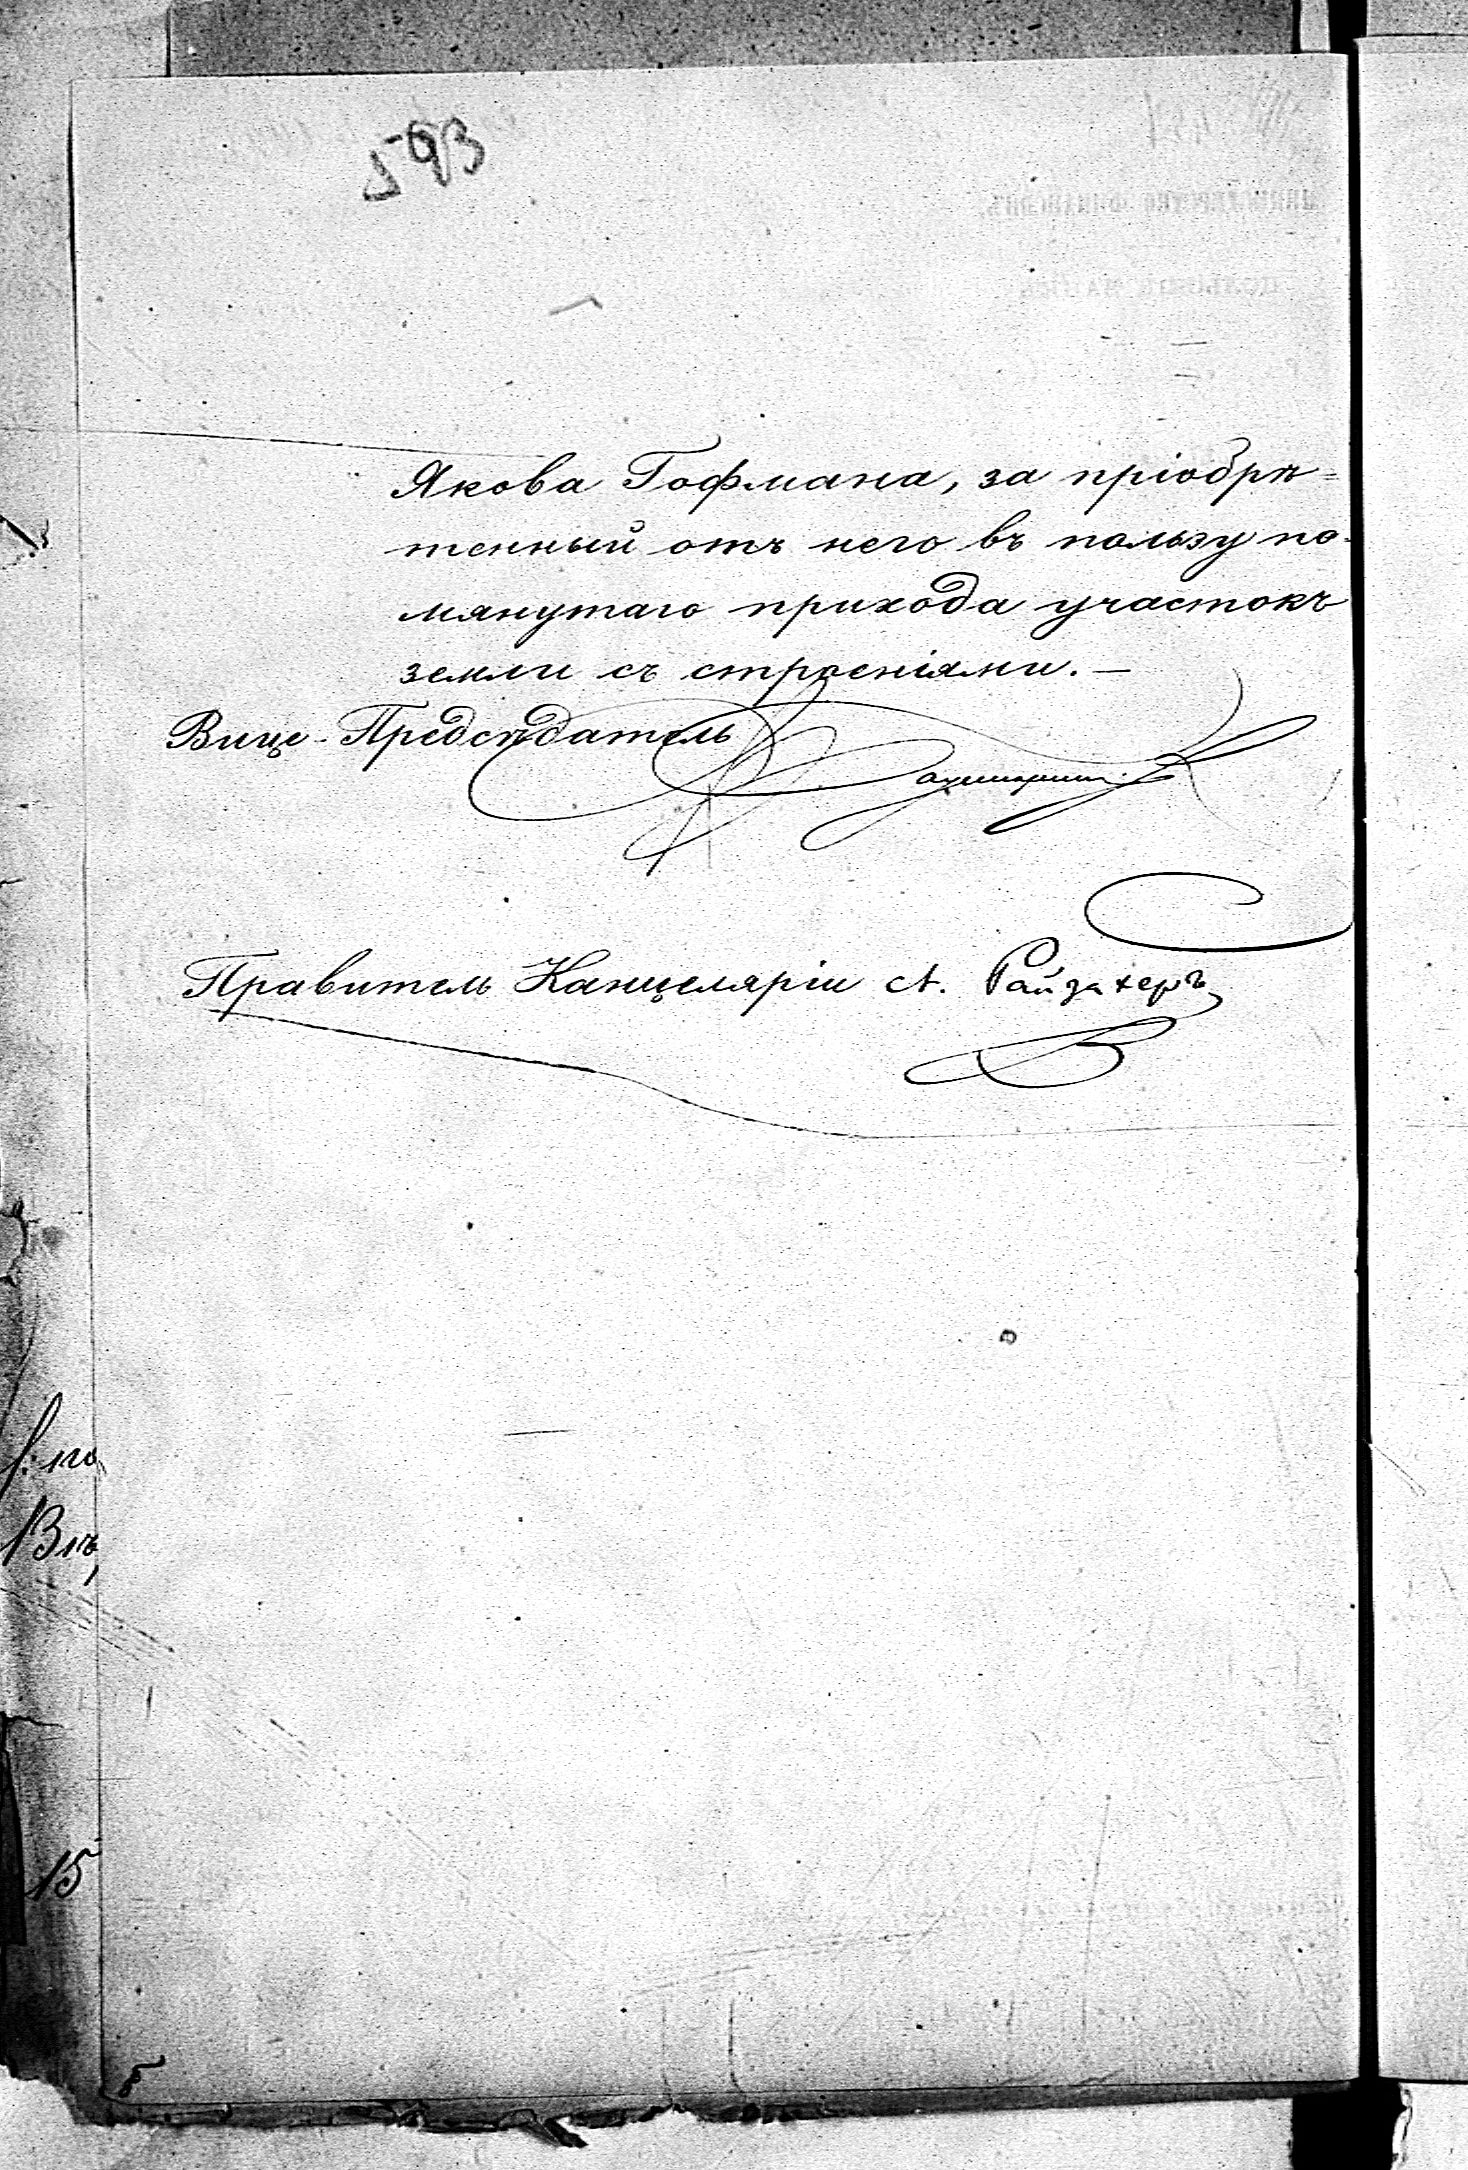 593
Якова Гофмана, за пріобрѣ=
тенный отъ него въ пользу по-
мянутаго прихода участокъ
земли съ строеніями. —
Вице-Предсѣдатель
Правитель Канцеляріи А. Райзахеръ
15